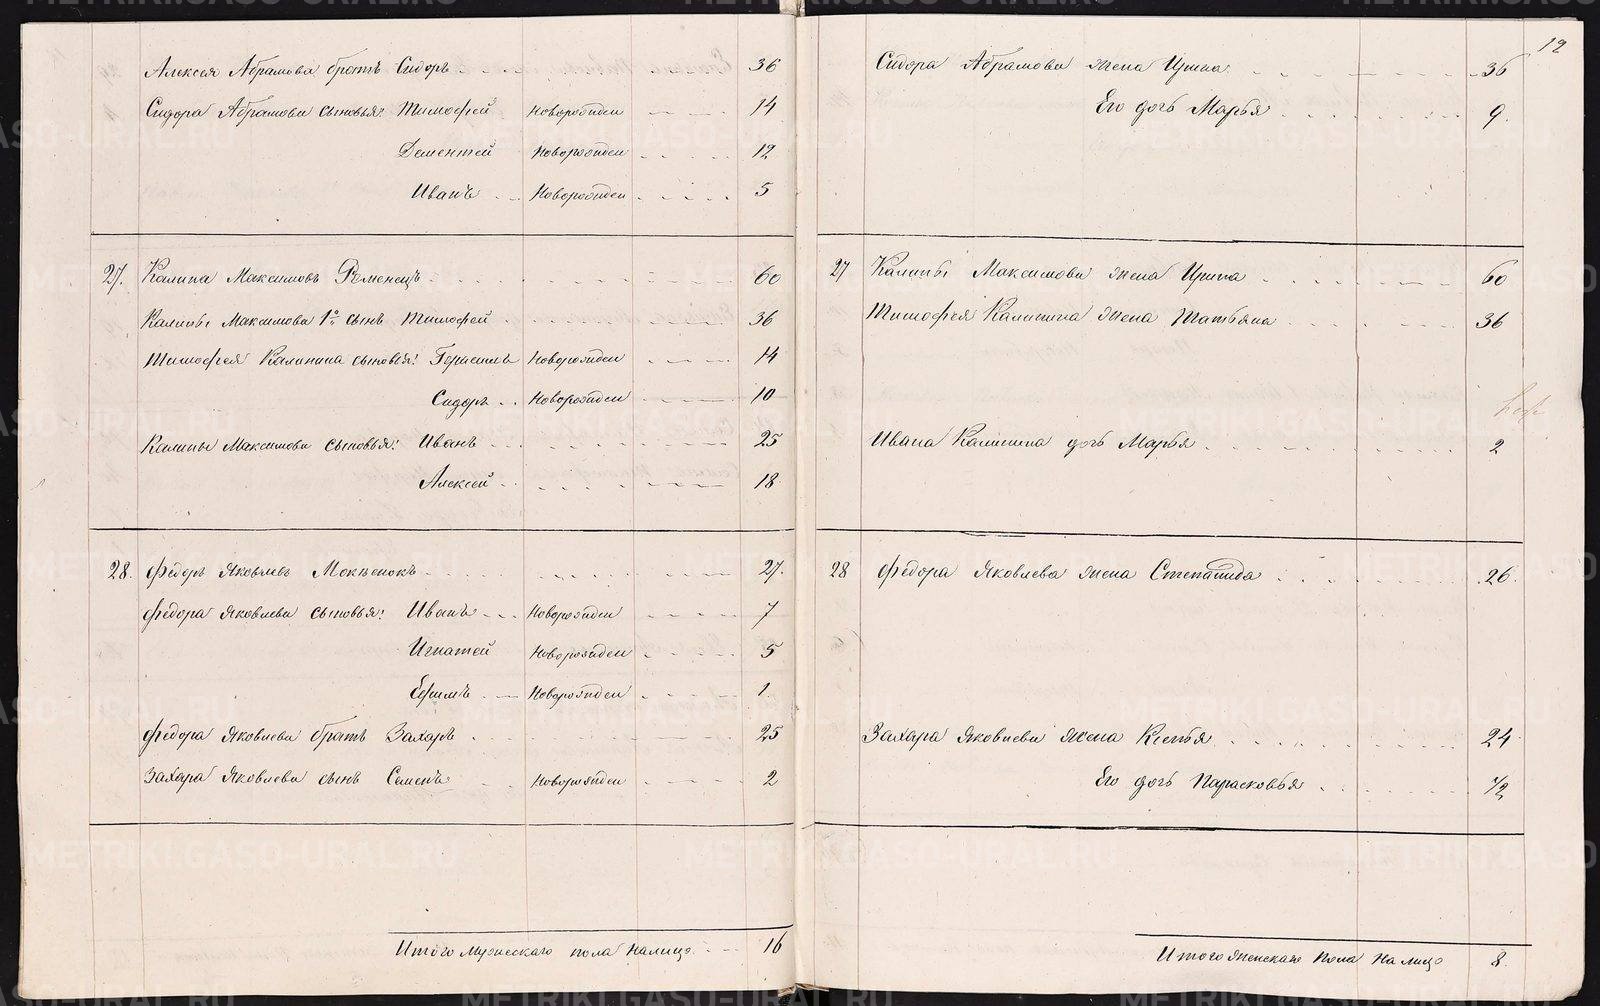 Алексея Абрамова братъ Сидоръ 36
Сидора Абрамова сыновья: Тимофей Новорожден 14
Дементей Новорожден 12
Иванъ Новорожден 5
27. Калина Максимовъ Ременецъ 60
Калины Максимова 1й сынъ Тимофей 36
Тимофея Калинина сыновья: Герасимъ Новорожден 14
Сидоръ Новорожден 10
Калины Максимова сыновья: Иванъ 25
Алексей 18
28. Федоръ Яковлевъ 27.
Федора Яковлева сыновья: Иванъ Новорожден 7
Игнатей Новорожден 5
Ефимъ Новорожден 1
Федора Яковлева братъ Захаръ 25
Захара Яковлева сынъ Семенъ Новорожден 2
Итого Мужескаго пола налицо 16
12
Сидора Абрамова жена Ирина 36
Его дочь Марья 9.
27 Калины Максимова жена Ирина 60
Тимофея Калинина жена Татьяна 36
Ивана Калинина дочь Марья 2
28 Федора Яковлева жена Степанида 26.
Захара Яковлева жена Ксенья 24
Его дочь Парасковья 1/2
Итого женскаго Пола На лицо 8.
METRIKI.GASO-URAL.RU